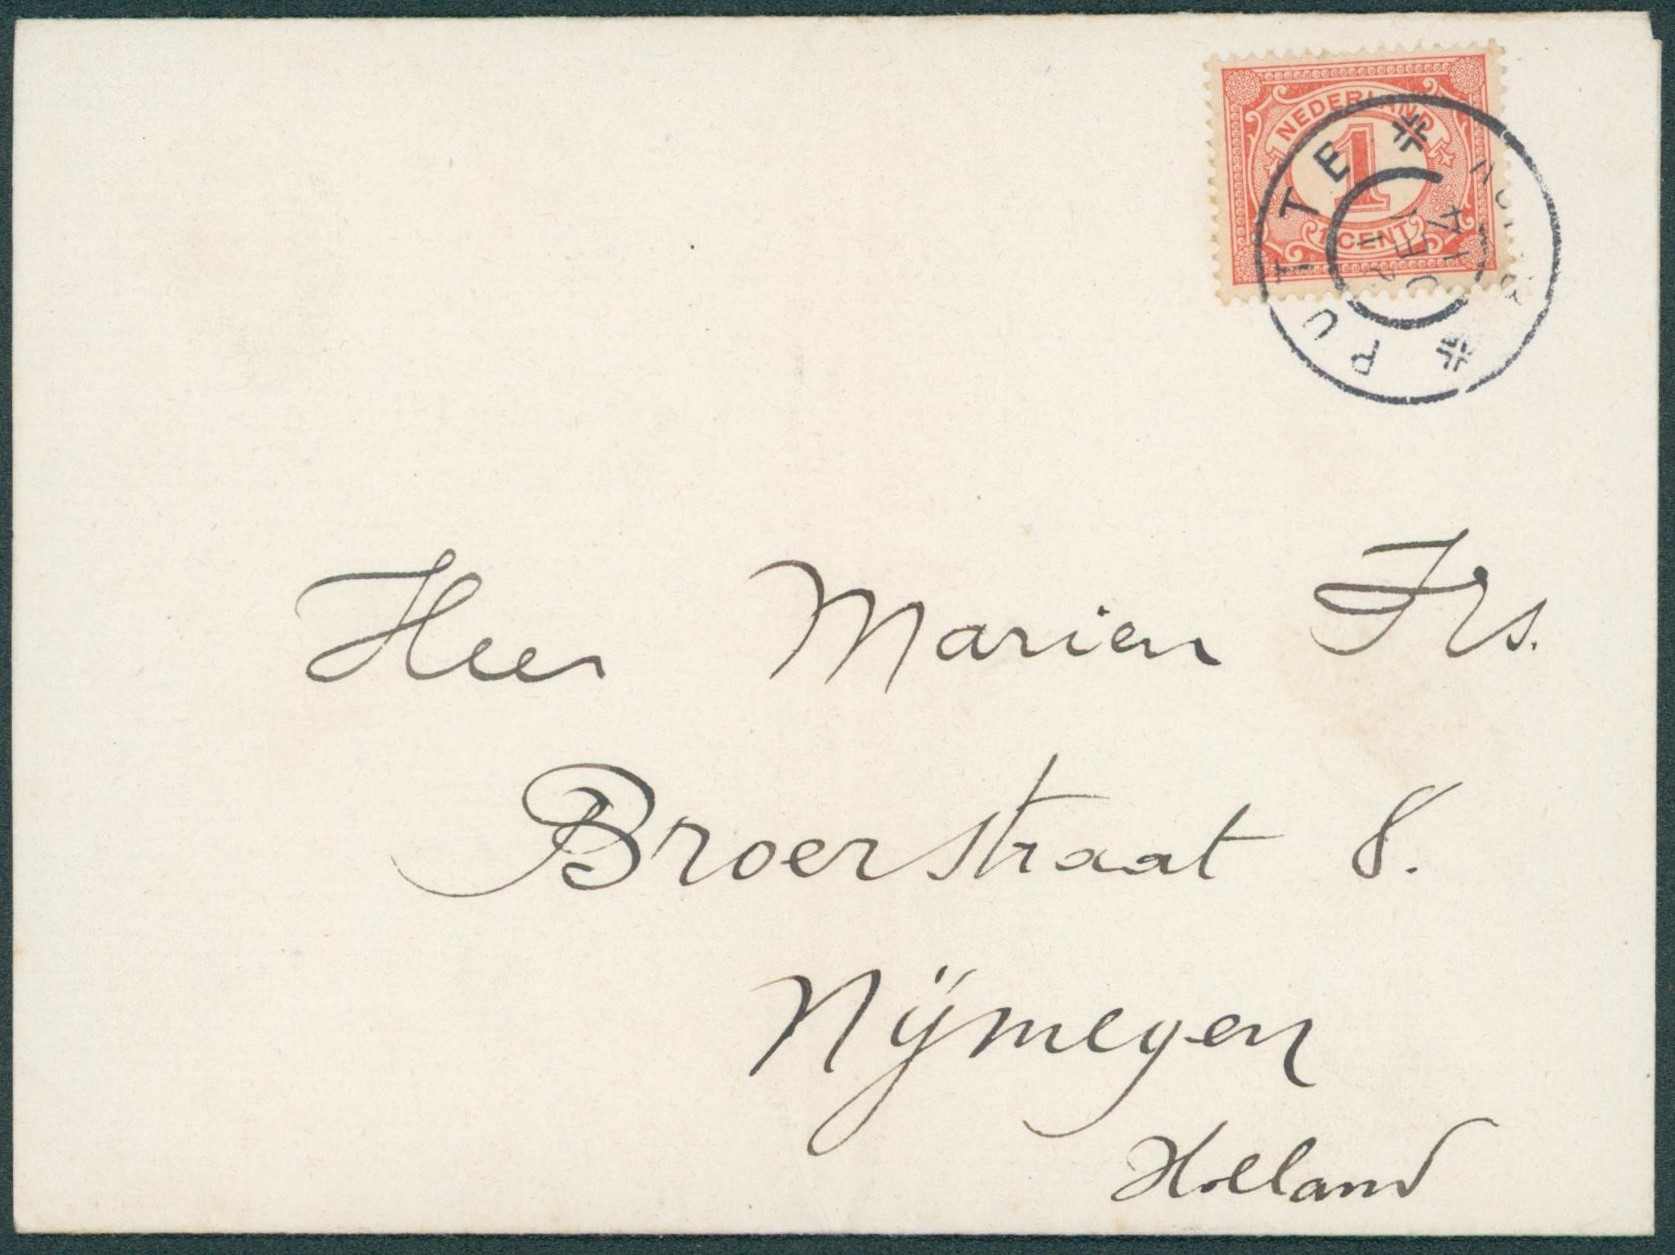 NEDERLAND
1
1 CENT
PUTTE
OCT
14
Heer Marien Frs.
Broerstraat 8.
Nÿmegen
Holland